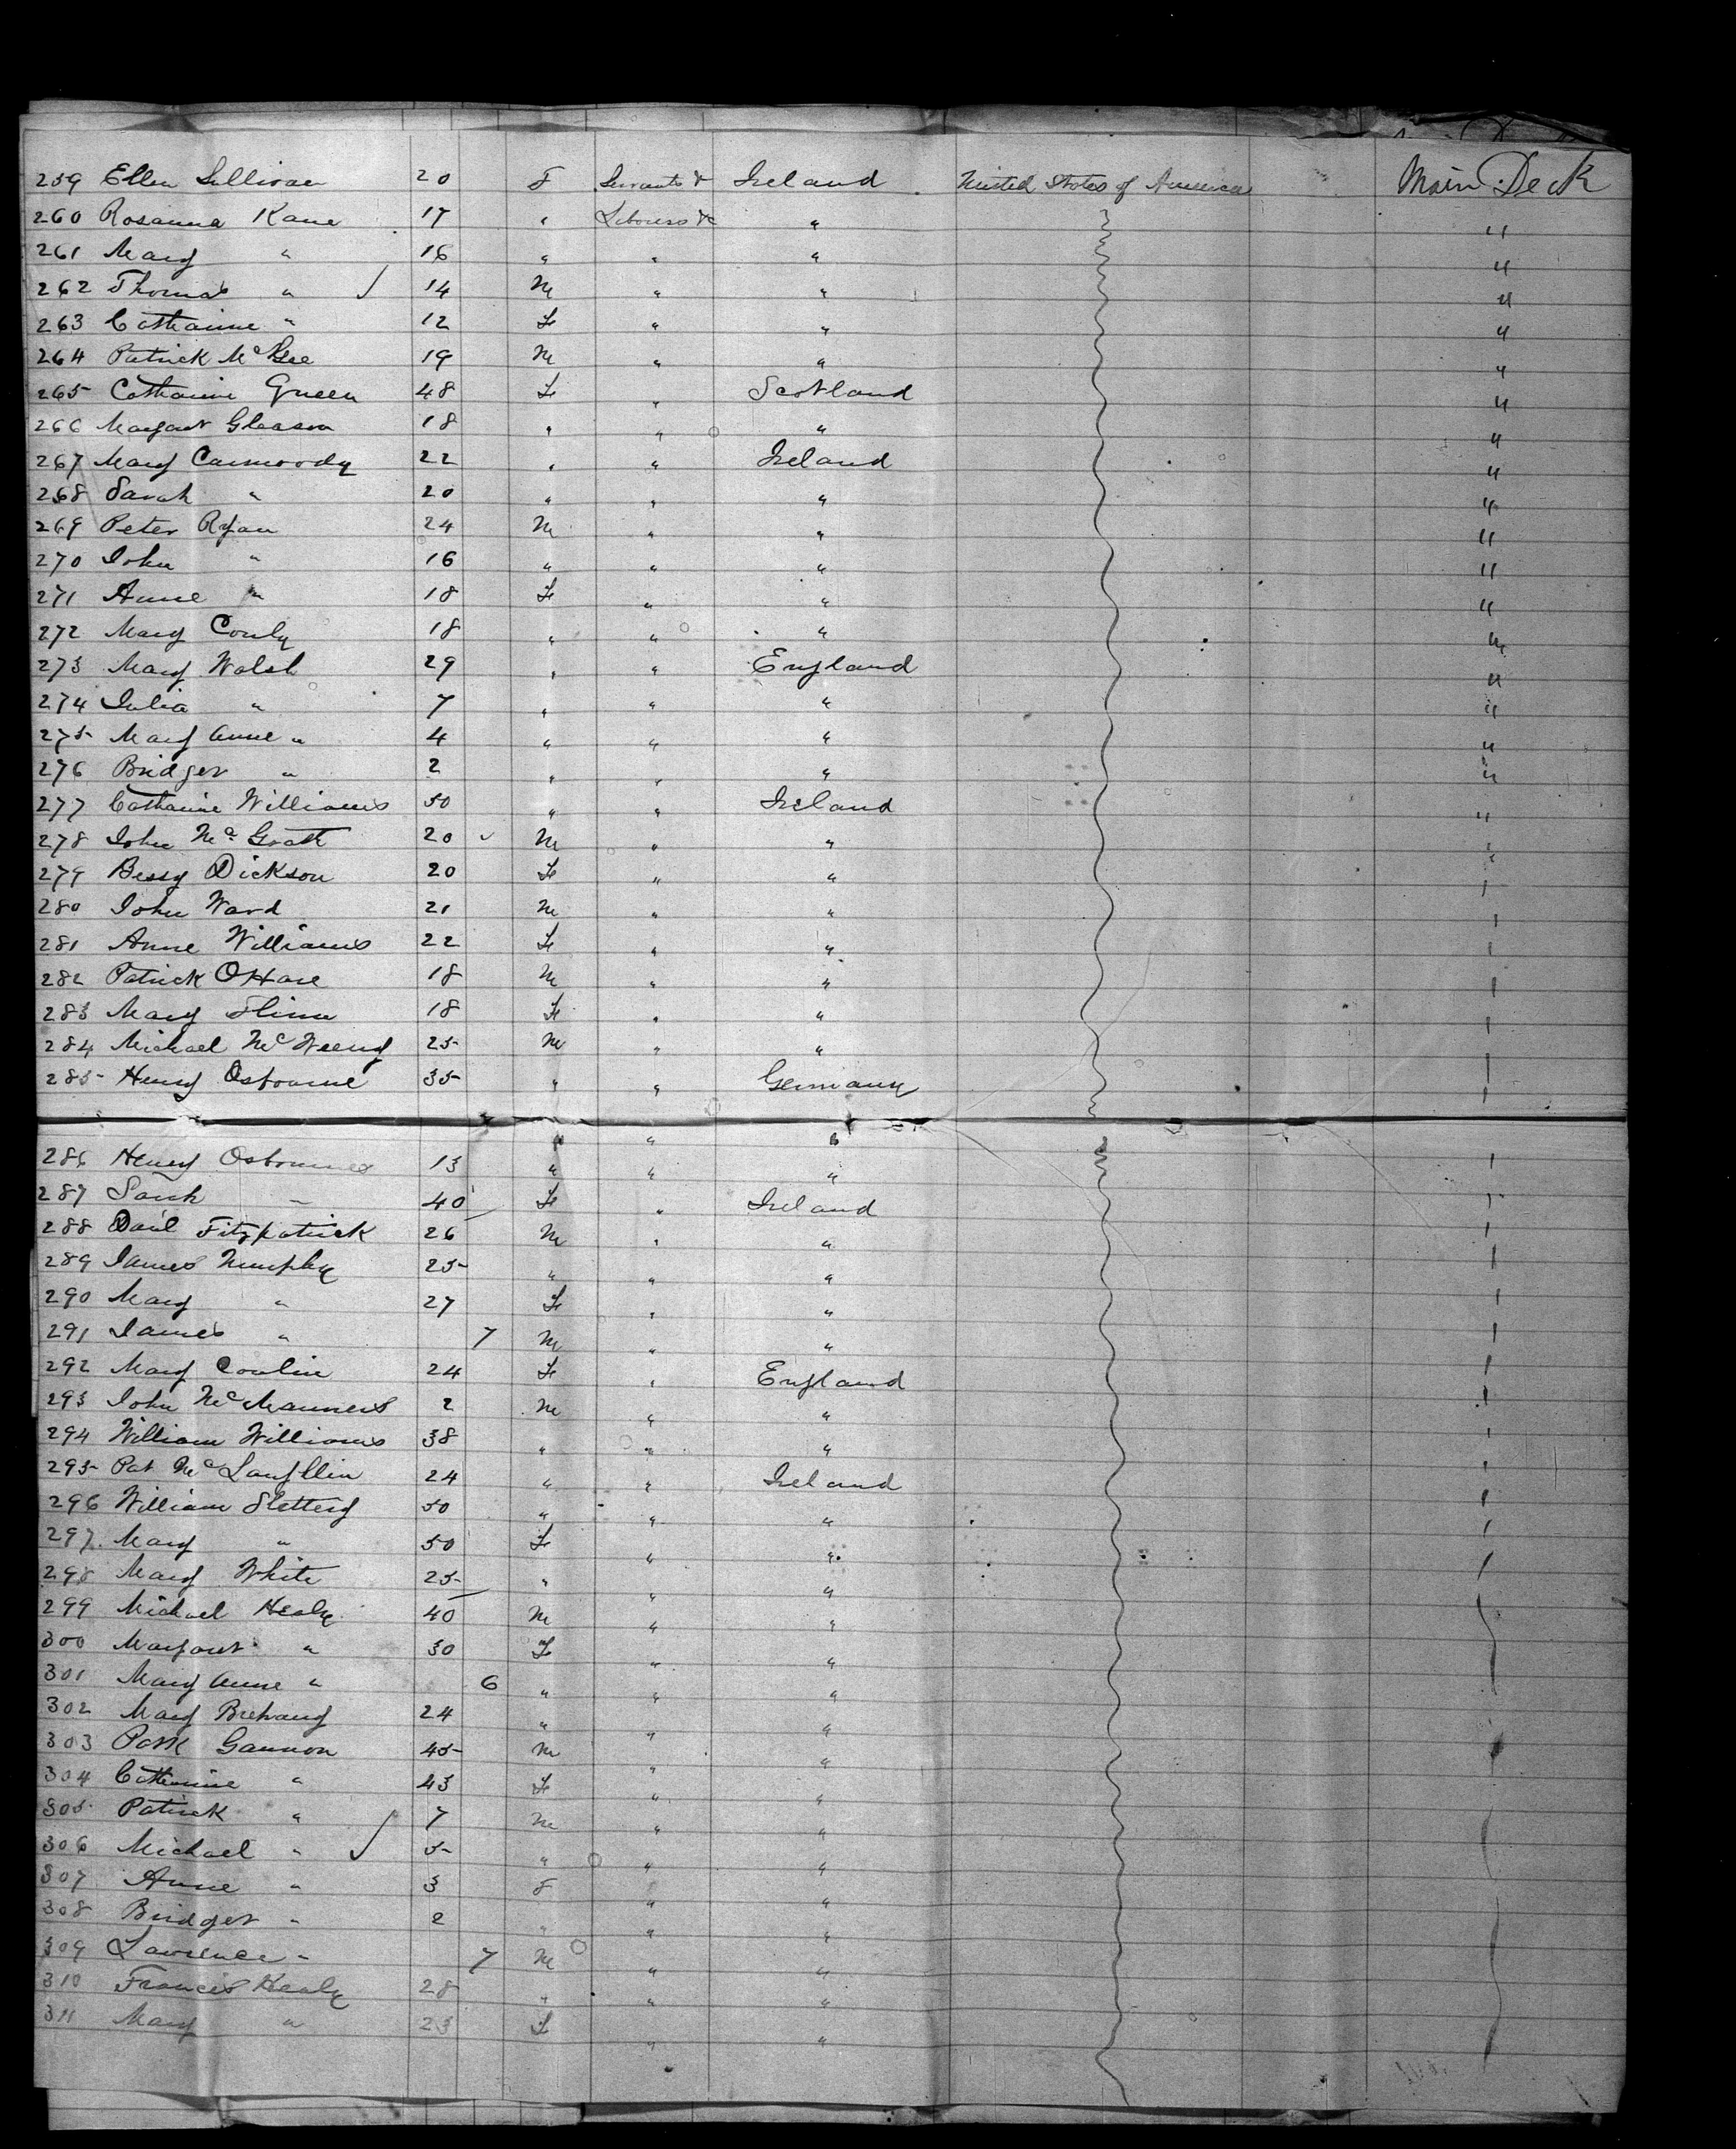 259 Ellen Sullivan 20 F Servants & Ireland United States of America Main Deck
260 Rosanna Kane 17 " Labourers &c " "
261 Mary " 16 " " " "
262 Thomas " 14 M " " "
263 Catharine " 12 Fe " " "
264 Patrick McGee 19 M " " "
265 Catharine Green 48 Fe " Scotland "
266 Margaret Gleason 18 " " " "
267 Mary Carmoody 22 " " Ireland "
268 Sarah " 20 " " " "
269 Peter Ryan 24 M " " "
270 John " 16 " " " "
271 Anne " 18 Fe " " "
272 Mary Conly 18 " " " "
273 Mary Walsh 29 " " England "
274 Julia " 7 " " " "
275 Mary Anne " 4 " " " "
276 Bridget " 2 " " " "
277 Catharine Williams 50 " " Ireland "
278 John McGrath 20 M " " "
279 Bessy Dickson 20 Fe " "
280 John Ward 21 M " "
281 Anne Williams 22 Fe " "
282 Patrick OHare 18 M " "
283 Mary Flinn 18 Fe " "
284 Michael Mc 25 M " "
285 Henry Osbourne 35 " " Germany
" " "
286 Henry Osbournes 13 " " "
287 Sarah " 40 Fe " Ireland
288 Danl Fitzpatrick 26 M " "
289 James Murphy 25 " " "
290 Mary " 27 Fe " "
291 James " 7 M " "
292 Mary Conlin 24 Fe " England
293 John McManners 2 M " "
294 William Williams 38 " " "
295 Pat McLaughlin 24 " " Ireland
296 William Slettery 50 " " "
297 Mary " 50 Fe " "
298 Mary White 25 " " "
299 Michael Healy 40 M " "
300 Margaret " 30 Fe " "
301 Mary Anne " 6 " " "
302 Mary 24 " " "
303 Gannon 45 M " "
304 Catharine " 43 Fe " "
305 Patrick " 7 M " "
306 Michael " 5 " " "
307 Anne " 3 F " "
308 Bridget " 2 " " "
309 Lawrence " 7 M " "
310 Francis Healy 28 " " "
311 Mary " 23 Fe " "